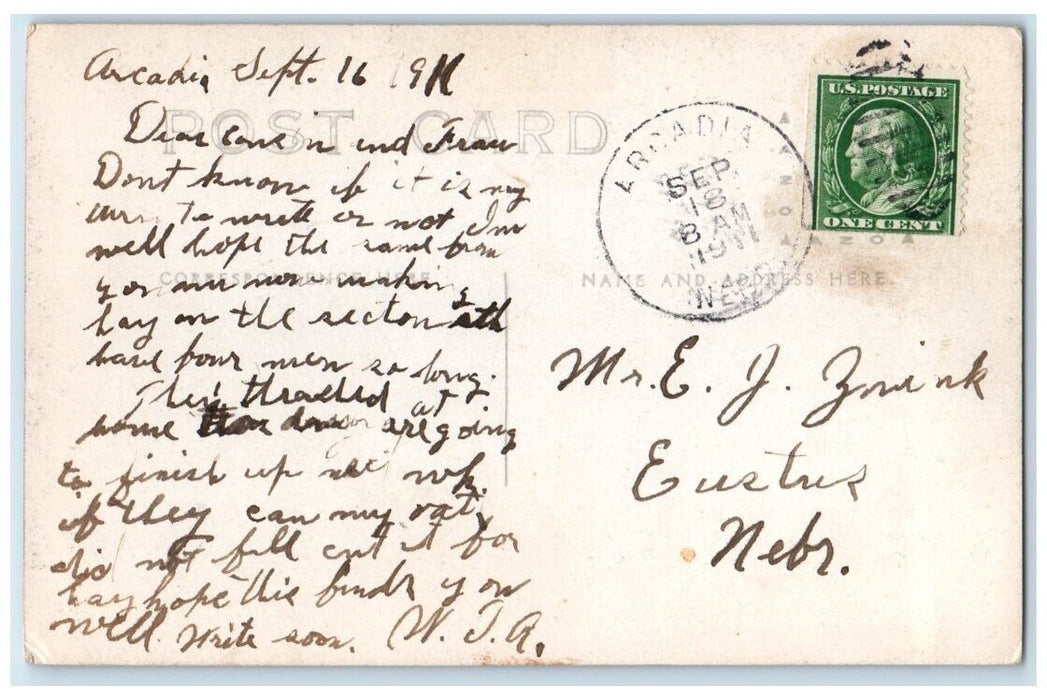 Arcadia Sept. 16 1911
POST CARD
Dear in und Frau
Dont know if it is my
to write or not Im
well hope the same from
you now making
CORRESPONDENCE HERE
hay on the section
have four men so long.
They thrashed at
home are going
to finish up wk.
if they can my
did not fill cut it for
hay hope this finds you
well write soon. W. J. A.
ARCADIA
SEP
18
8 AM
1911
NEB
U.S. POSTAGE
ONE CENT
AZO
NAME AND ADDRESS HERE
Mr. E. J. Zwink
Eustus
Nebr.